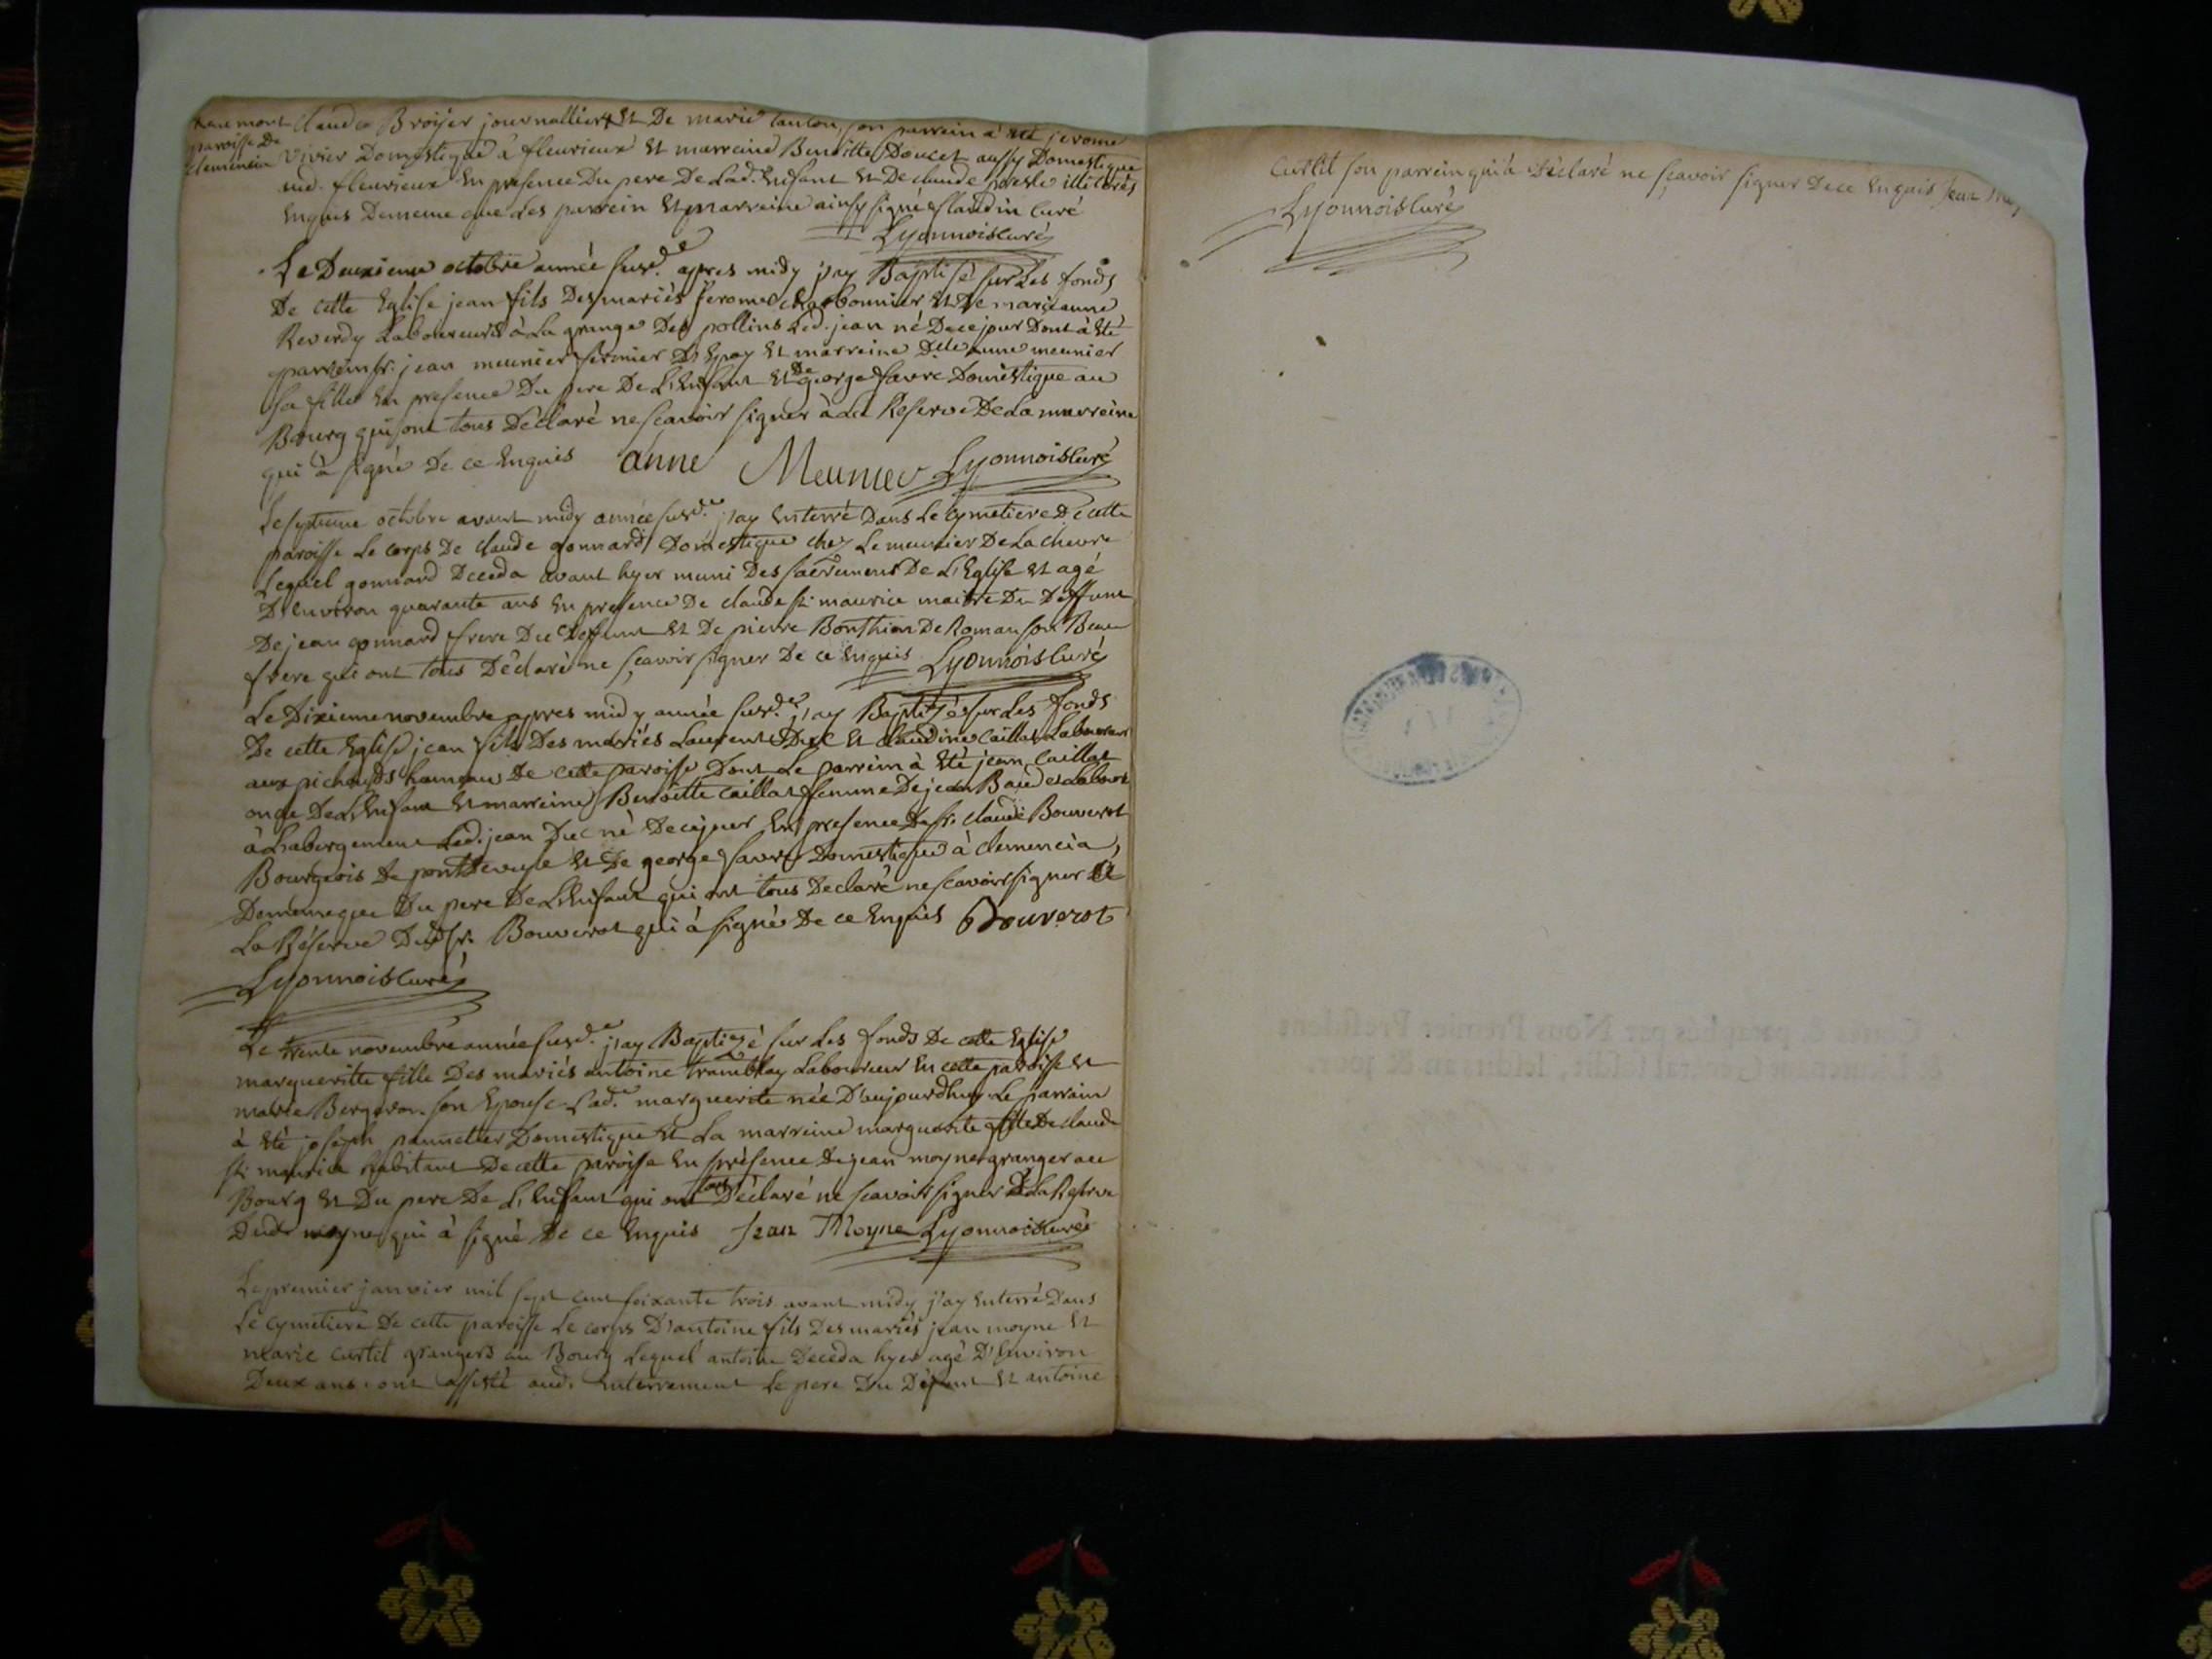 paroisse De
clemencia
claude Broÿer journallier et De marie tanton, son parrein à été jerome
vivier Domestique à fleurieux et marreine Benoitte Doucet aussy Domestique
aud. fleurieux en presence Du pere De Lad. enfant et De claude illiterés
enquis Dememe que Les parrein et marreine ainsy signé flandin curé
Lyonnois curé
Le Deuxieme octobre année susd.e apres midy j'ay Baptisé sur Les fonds
De cette Eglise jean fils Des mariés Jerome charbonnier et De marieanne
Reverdy Laboureurs à La grange Des pollins Led. jean né Dece jour Dont à été
parrein sr. jean meunier fermier D'Epay et marreine Dlle anne meunier
sa fille en presence Du pere De L'enfant et De george favre Domestique au
Bourg qui ont tous Déclaré ne scavoir signer à La Reserve De La marreine
qui à signé De ce enquis anne Meunier Lyonnois curé
Le septieme octobre avant midy année susd.e j'ay enterré Dans Le cymetiere De cette
paroisse Le corps De claude gonnard Domestique chez Le meunier De La chevre
Lequel gonnard Deceda avant hyer muni Des sacremens De L'Eglise et agé
D'environ quarante ans en presence De claude st. maurice maitre Du Deffunt
De jean gonnard frere Du Deffunt et De pierre Bonthion De Roman son Beau
frere qui ont tous Déclaré ne sçavoir signer De ce enquis Lyonnois curé
Le Dixieme novembre apres midy année susd.e j'ay Baptizé sur Les fonds
De cette Eglise jean fils Des mariés Laurent Duc et claudine caillat Laboureurs
aux pichauds hameau De cette paroisse Dont Le parrein à été jean caillat
oncle De L'enfant et marreine Benoitte caillat femme De jean Baudet Labour
à L'abergement Led. jean Duc né Dece jour en presence De sr. claude Bouverot
Bourgeois De pontdevesle et De george favre Domestique à clemencia,
Dememe que Du pere De L'enfant qui ont tous Declaré ne scavoir signer à
La Réserve Dud. sr. Bouverot qui à signé De ce enquis Bouverot
Lyonnois curé
Le trente novembre année susd.e j'ay Baptizé sur Les fonds De cette Eglise
margueritte fille Des mariés antoine tramblay Laboureur en cette paroisse et
marie Bergeron son Epouse Lad.e marguerite née D'aujourdhuy Le parrain
à été joseph pannetier Domestique et La marreine marguerite fille De claude
st. maurice habitant De cette paroisse en présence De jean moyne granger au
Bourg et Du pere De L'enfant qui ont tous Déclaré ne scavoir signer à La Reserve
Dud. moyne qui à signé De ce enquis Jean Moyne Lyonnois curé
Le premier janvier mil sept cent soixante trois avant midy j'ay enterré Dans
Le cymetiere De cette paroisse Le corps D'antoine fils Des mariés jean moyne et
marie curtil grangers au Bourg Lequel antoine Deceda hyer agé D'environ
Deux ans. ont assisté aud. enterrement Le pere Du Défunt et antoine
curtil son parrein qui à Déclaré ne sçavoir signer De ce enquis Jean
Lyonnois curé
Cottés & paraphés par Nous Premier Président
& Lieutenant Général susdit, lesdits an & jour.